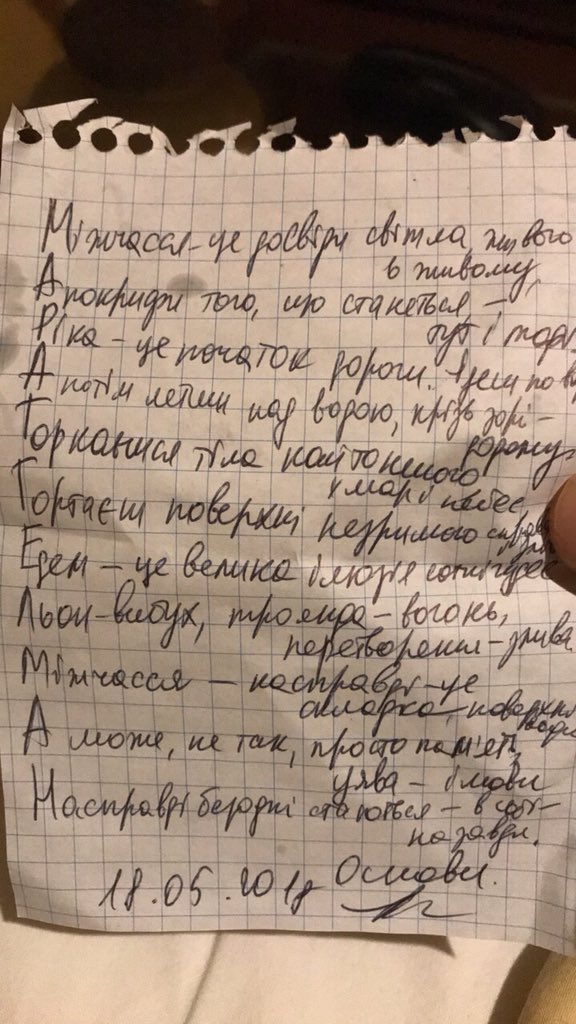 Міжчасся – це досвіди світла живого
в живому,
Апокрифи того, що станеться, –
тут і тоді.
Ріка – це початок дороги. Ідеш по
А потім летиш над водою, крізь зорі –
додому.
Торкаєшся тіла найтоншого
хмари небес,
Гортаєш поверхні незримого
Едем – це велика ілюзія сотні чудес
Льон – вибух, троянда – вогонь,
перетворення – злива.
Міжчасся – насправді – це
складка, поверхня
А може, не так, просто пам'ять,
уява – і мови
Насправді безодні стаються – в світі –
назавди.
18.05.2018 Основи.